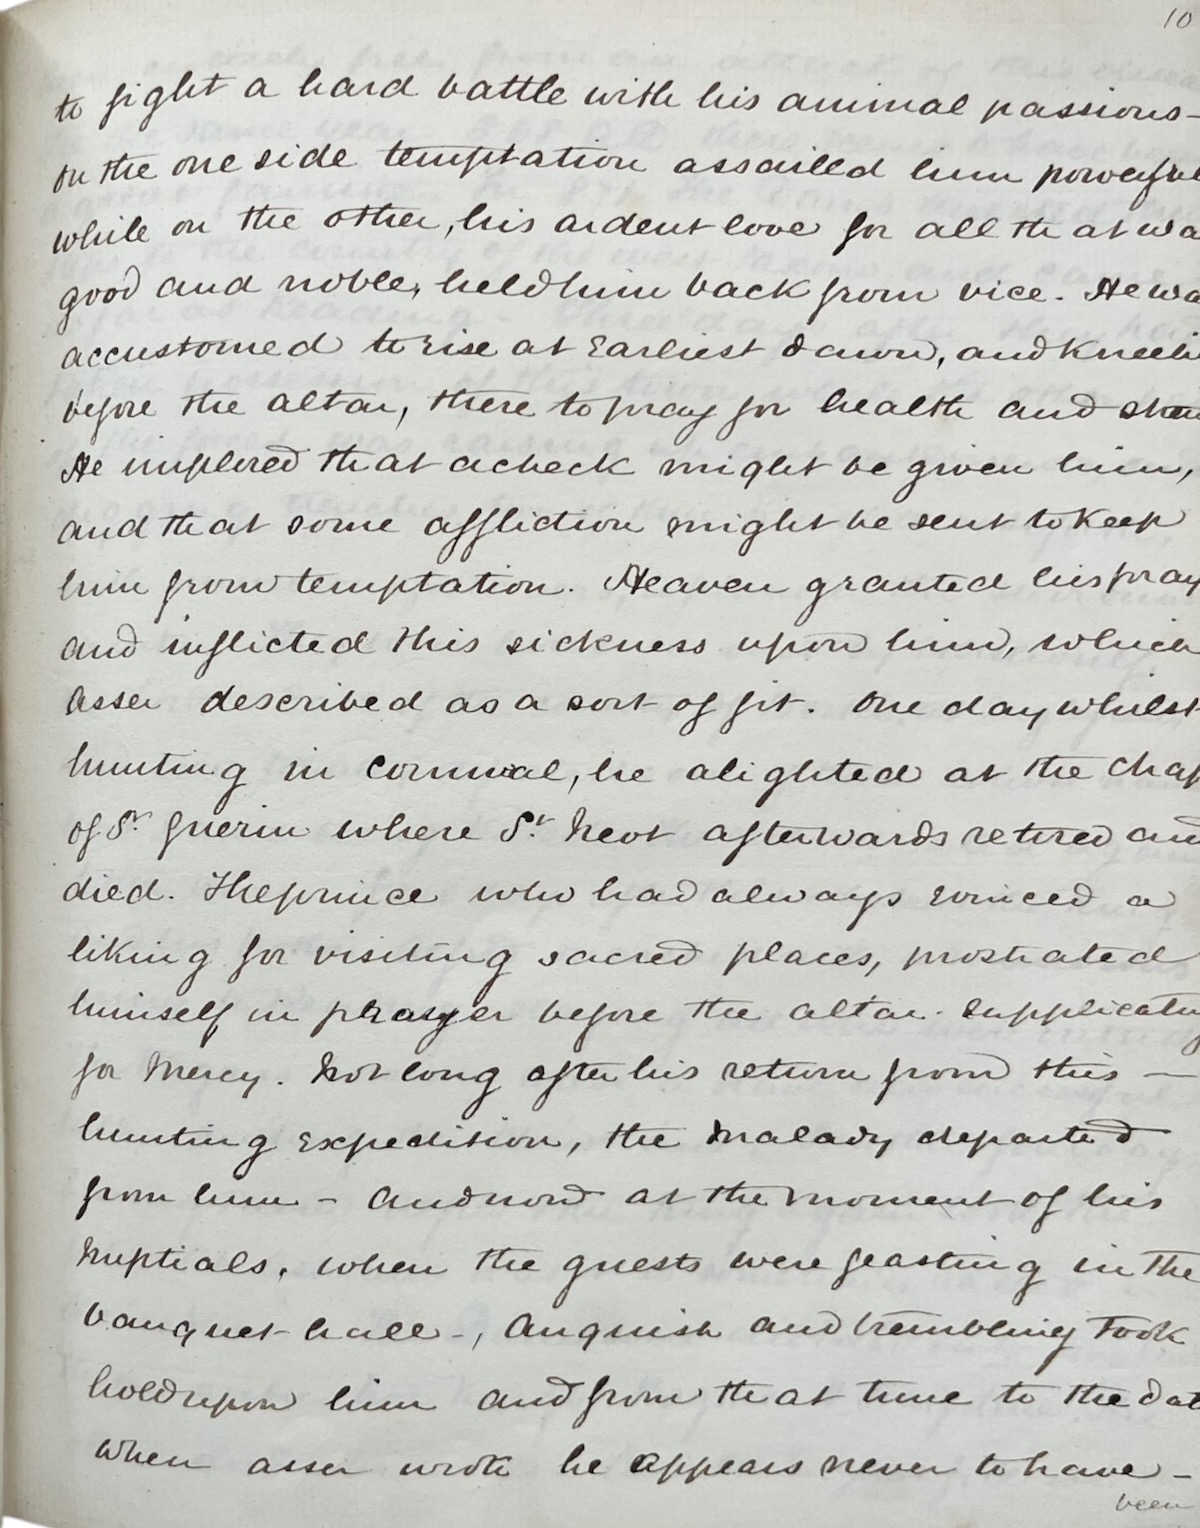 10
to fight a hard battle with his animal passions -
on the one side temptation assailed him powerful
while on the other, his ardent love for all that wa
good and noble, held him back from vice. He wa
accustomed to rise at Earliest dawn, and kneeli
before the altar, there to pray for health and
He implored that a check might be given him,
and that some affliction might be sent to keep
him from temptation. Heaven granted his pray
and inflicted this sickness upon him, which
Asser described as a sort of fit. One day whilst
hunting in Cornwal, he alighted at the chap
of St. Guerin where St. Neot afterwards retired and
died. The prince who had always evinced a
liking for visiting sacred places, prostrated
himself in prayer before the altar. Supplicating
for Mercy. Not long after his return from this —
hunting Expedition, the Malady departed
from him - and now at the moment of his
Nuptials, when the guests were feasting in the
banquet-hall -, Anguish and trembling took
hold upon him and from that time to the dat
when asser wrote he appears never to have -
been